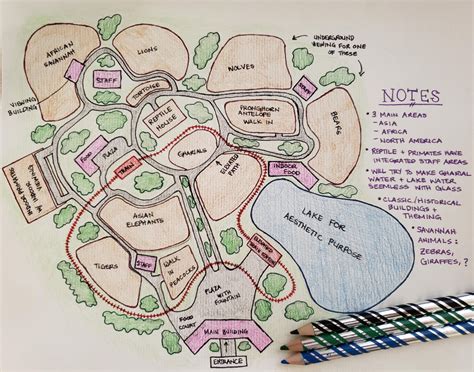 AFRICAN
SAVANNAH
LIONS
STAFF
TORTOISE
WOLVES
UNDERGROUND
VIEWING FOR ONE
OF THESE
PRONGHORN
ANTELOPE
WALK IN
BEARS
VIEWING
BUILDING
REPTILE
HOUSE
FOOD
PLAZA
TRAIN
GHARIALS
ELEVATED
PATH
INDOOR
FOOD
ASIAN
ELEPHANTS
TIGERS
STAFF
WALK
IN
PEACOCKS
LAKE FOR
AESTHETIC PURPOSE
PLAZA
WITH
FOUNTAIN
FOOD
COURT
MAIN BUILDING
ENTRANCE
NOTES
* 3 MAIN AREAS
- ASIA
- AFRICA
- NORTH AMERICA
* REPTILE + PRIMATES HAVE
INTEGRATED STAFF AREAS
* WILL TRY TO MAKE GHARIAL
WATER + LAKE WATER
SEEMLESS WITH GLASS
* CLASSIC/HISTORICAL
BUILDINGS +
THEMING
* SAVANNAH
ANIMALS:
ZEBRAS,
GIRAFFES, ?